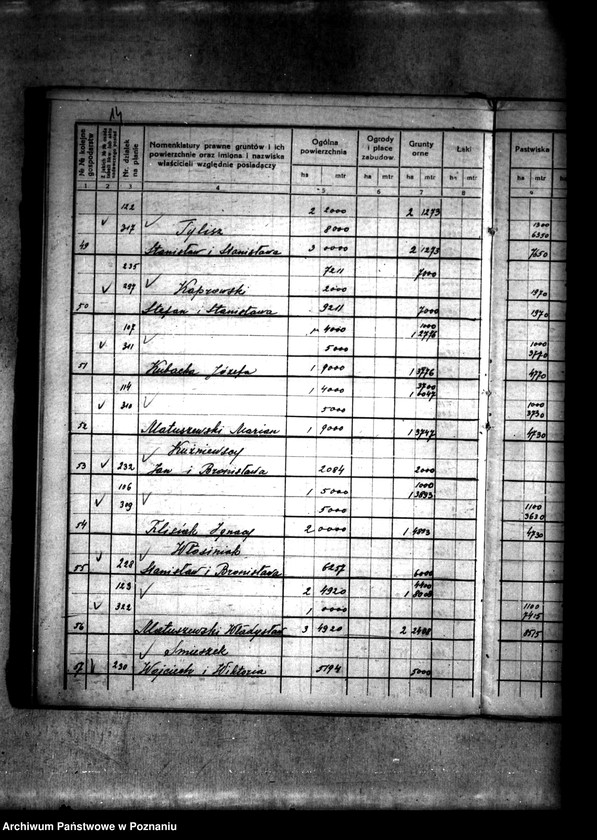 14
№№ kolejne gospodarstw
Nr. działek na planie
Nomenklatury prawne gruntów i ich powierzchnie oraz imiona i nazwiska właścicieli względnie posiadaczy
Ogólna powierzchnia
Ogrody i place zabudow.
Grunty orne
Łąki
Pastwiska
ha mtr ha mtr ha mtr ha mtr ha mtr
1 2 3 4 5 6 7 8 9
122 2 2000 2 1273
317 Tylisz 8000 1300
6350
49 Stanisław i Stanisława 3 0000 2 1273 7650
235 7211 7000
297 Kaprowski 2000 1970
50 Stefan i Stanisława 9211 7000 1970
107 4000 1000
1 2776
311 5000 1000
3770
51 Kubacka Józefa 1 9000 1 3776 4770
114 1 4000 3700
1 0047
310 5000 1000
3730
52 Matuszewski Marian 1 9000 1 3747 4730
Kuźniewscy
53 232 Jan i Bronisława 2084 2000
106 1 5000 1000
1 3893
309 5000 1100
3630
54 Klisiak Ignacy 2 0000 1 4893 4730
Włosiniak
55 228 Stanisław i Bronisława 6257 6000
123 2 4920 4400
1 8008
322 1 0000 1100
7415
56 Matuszewski Władysław 3 4920 2 2408 8515
Śmieszek
57 230 Wojciech i Wiktoria 5194 5000
Archiwum Państwowe w Poznaniu